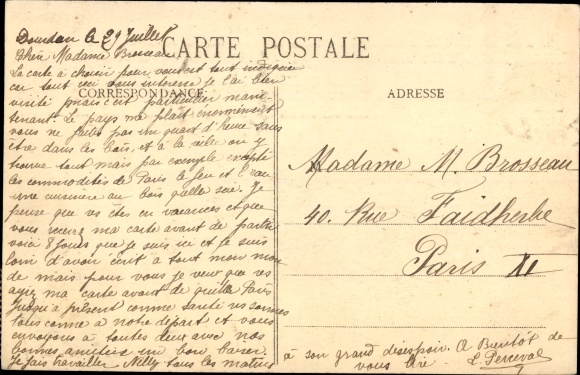 Dourdan le 29 Juillet
CARTE POSTALE
CORRESPONDANCE
ADRESSE
Chère Madame Brosseau
La carte a choisir pour vous est tout indiquée
car tout ceci vous interesse je l'ai bien
visité mais c'est particulier main
tenant. Le pays me plait énormément
vous ne faites pas un quart d'heure sans
être dans les bois, et à la ville on y
trouve tout mais par exemple excepté
les commodités de Paris le feu et l'eau
une cuisinière au bois qu'elle scie. Je
pense que vs êtes en vacances et que
vous recevez ma carte avant de partir
voici 8 jours que je suis ici et je suis
loin d'avoir écrit à tout mon mon
de mais pour vous je veux que vs
ayiez ma carte avant de quitter Paris
Jusqu'à présent comme santé ns sommes
tous comme à notre départ et vous
envoyons à toutes deux avec nos
bonnes amitiés un bon baiser.
Je fais travailler Nelly tous les matins
à son grand désespoir. A Bientôt de
vous lire L. Perceval
Madame M. Brosseau
40. Rue Faidherbe
Paris XI